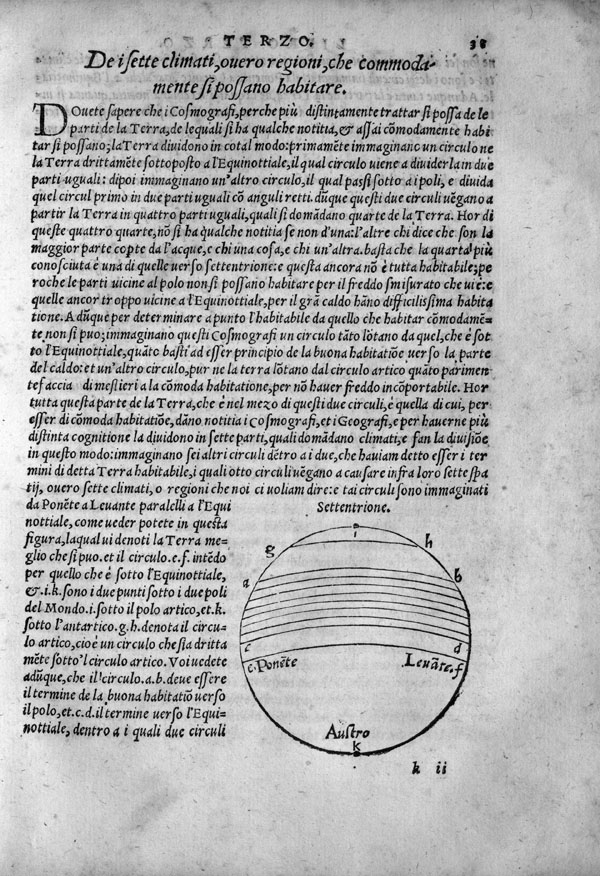 TERZO. 38
De i sette climati, overo regioni, che commoda-
mente si possano habitare.
DOuete sapere che i Cosmografi, perche più distintamente trattar si possa de le
parti de la Terra, de lequali si ha qualche notitia, & assai cõmodamente habi
tar si possano; la Terra diuidono in cotal modo: primamẽte immaginano un circulo ne
la Terra drittamẽte sottoposto a l'Equinottiale, il qual circulo uiene a diuiderla in due
parti uguali: dipoi immaginano un'altro circulo, il qual passi sotto a i poli, e diuida
quel circul primo in due parti uguali cõ anguli retti. dũque questi due circuli uẽgano a
partir la Terra in quattro parti uguali, quali si domãdano quarte de la Terra. Hor di
queste quattro quarte, nõ si ha qualche notitia se non d'una: l'altre chi dice che son la
maggior parte copte da l'acque, e chi una cosa, e chi un'altra. basta che la quarta più
conosciuta è una di quelle uerso settentrione: e questa ancora nõ è tutta habitabile; pe
roche le parti uicine al polo non si possano habitare per il freddo smisurato che ui è: e
quelle ancor troppo uicine a l'Equinottiale, per il grã caldo hãno difficilissima habita
tione. A dũque per determinare a punto l'habitabile da quello che habitar cõmodamẽ=
te non si puo; immaginano questi Cosmografi un circulo tãto lõtano da quel, che è sot
to l'Equinottiale, quãto basti ad esser principio de la buona habitatiõe uerso la parte
del caldo: et un'altro circulo, pur ne la terra lõtano dal circulo artico quãto parimen
te faccia di mestieri a la cõmoda habitatione, per nõ hauer freddo incõportabile. Hor
tutta questa parte de la Terra, che è nel mezo di questi due circuli, è quella di cui, per
esser di cõmoda habitatiõe, dãno notitia i Cosmografi, et i Geografi, e per hauerne più
distinta cognitione la diuidono in sette parti, quali domãdano climati, e fan la diuisiõe
in questo modo: immaginano sei altri circuli dẽtro a i due, che hauiam detto esser i ter
mini di detta Terra habitabile, i quali otto circuli uẽgano a causare infra loro sette spa
tij, ouero sette climati, o regioni che noi ci uoliam dire: e tai circuli sono immaginati
da Ponẽte a Leuante paralelli a l'Equi
nottiale, come ueder potete in questa
figura, laqual ui denoti la Terra me=
glio che si puo. et il circulo .e.f. intẽdo
per quello che è sotto l'Equinottiale,
&.i.k. sono i due punti sotto i due poli
del Mondo .i. sotto il polo artico, et.k.
sotto l'antartico .g.h. denota il circu=
lo artico, cioè un circulo che sia dritta
mẽte sotto'l circulo artico. Voi uedete
adũque, che il circulo .a.b. deue essere
il termine de la buona habitatiõ uerso
il polo, et.c.d. il termine uerso l'Equi=
nottiale, dentro a i quali due circuli
Settentrione.
i
g h
a b
c d
e. Ponẽte Leuãte. f
Austro
k
k ii